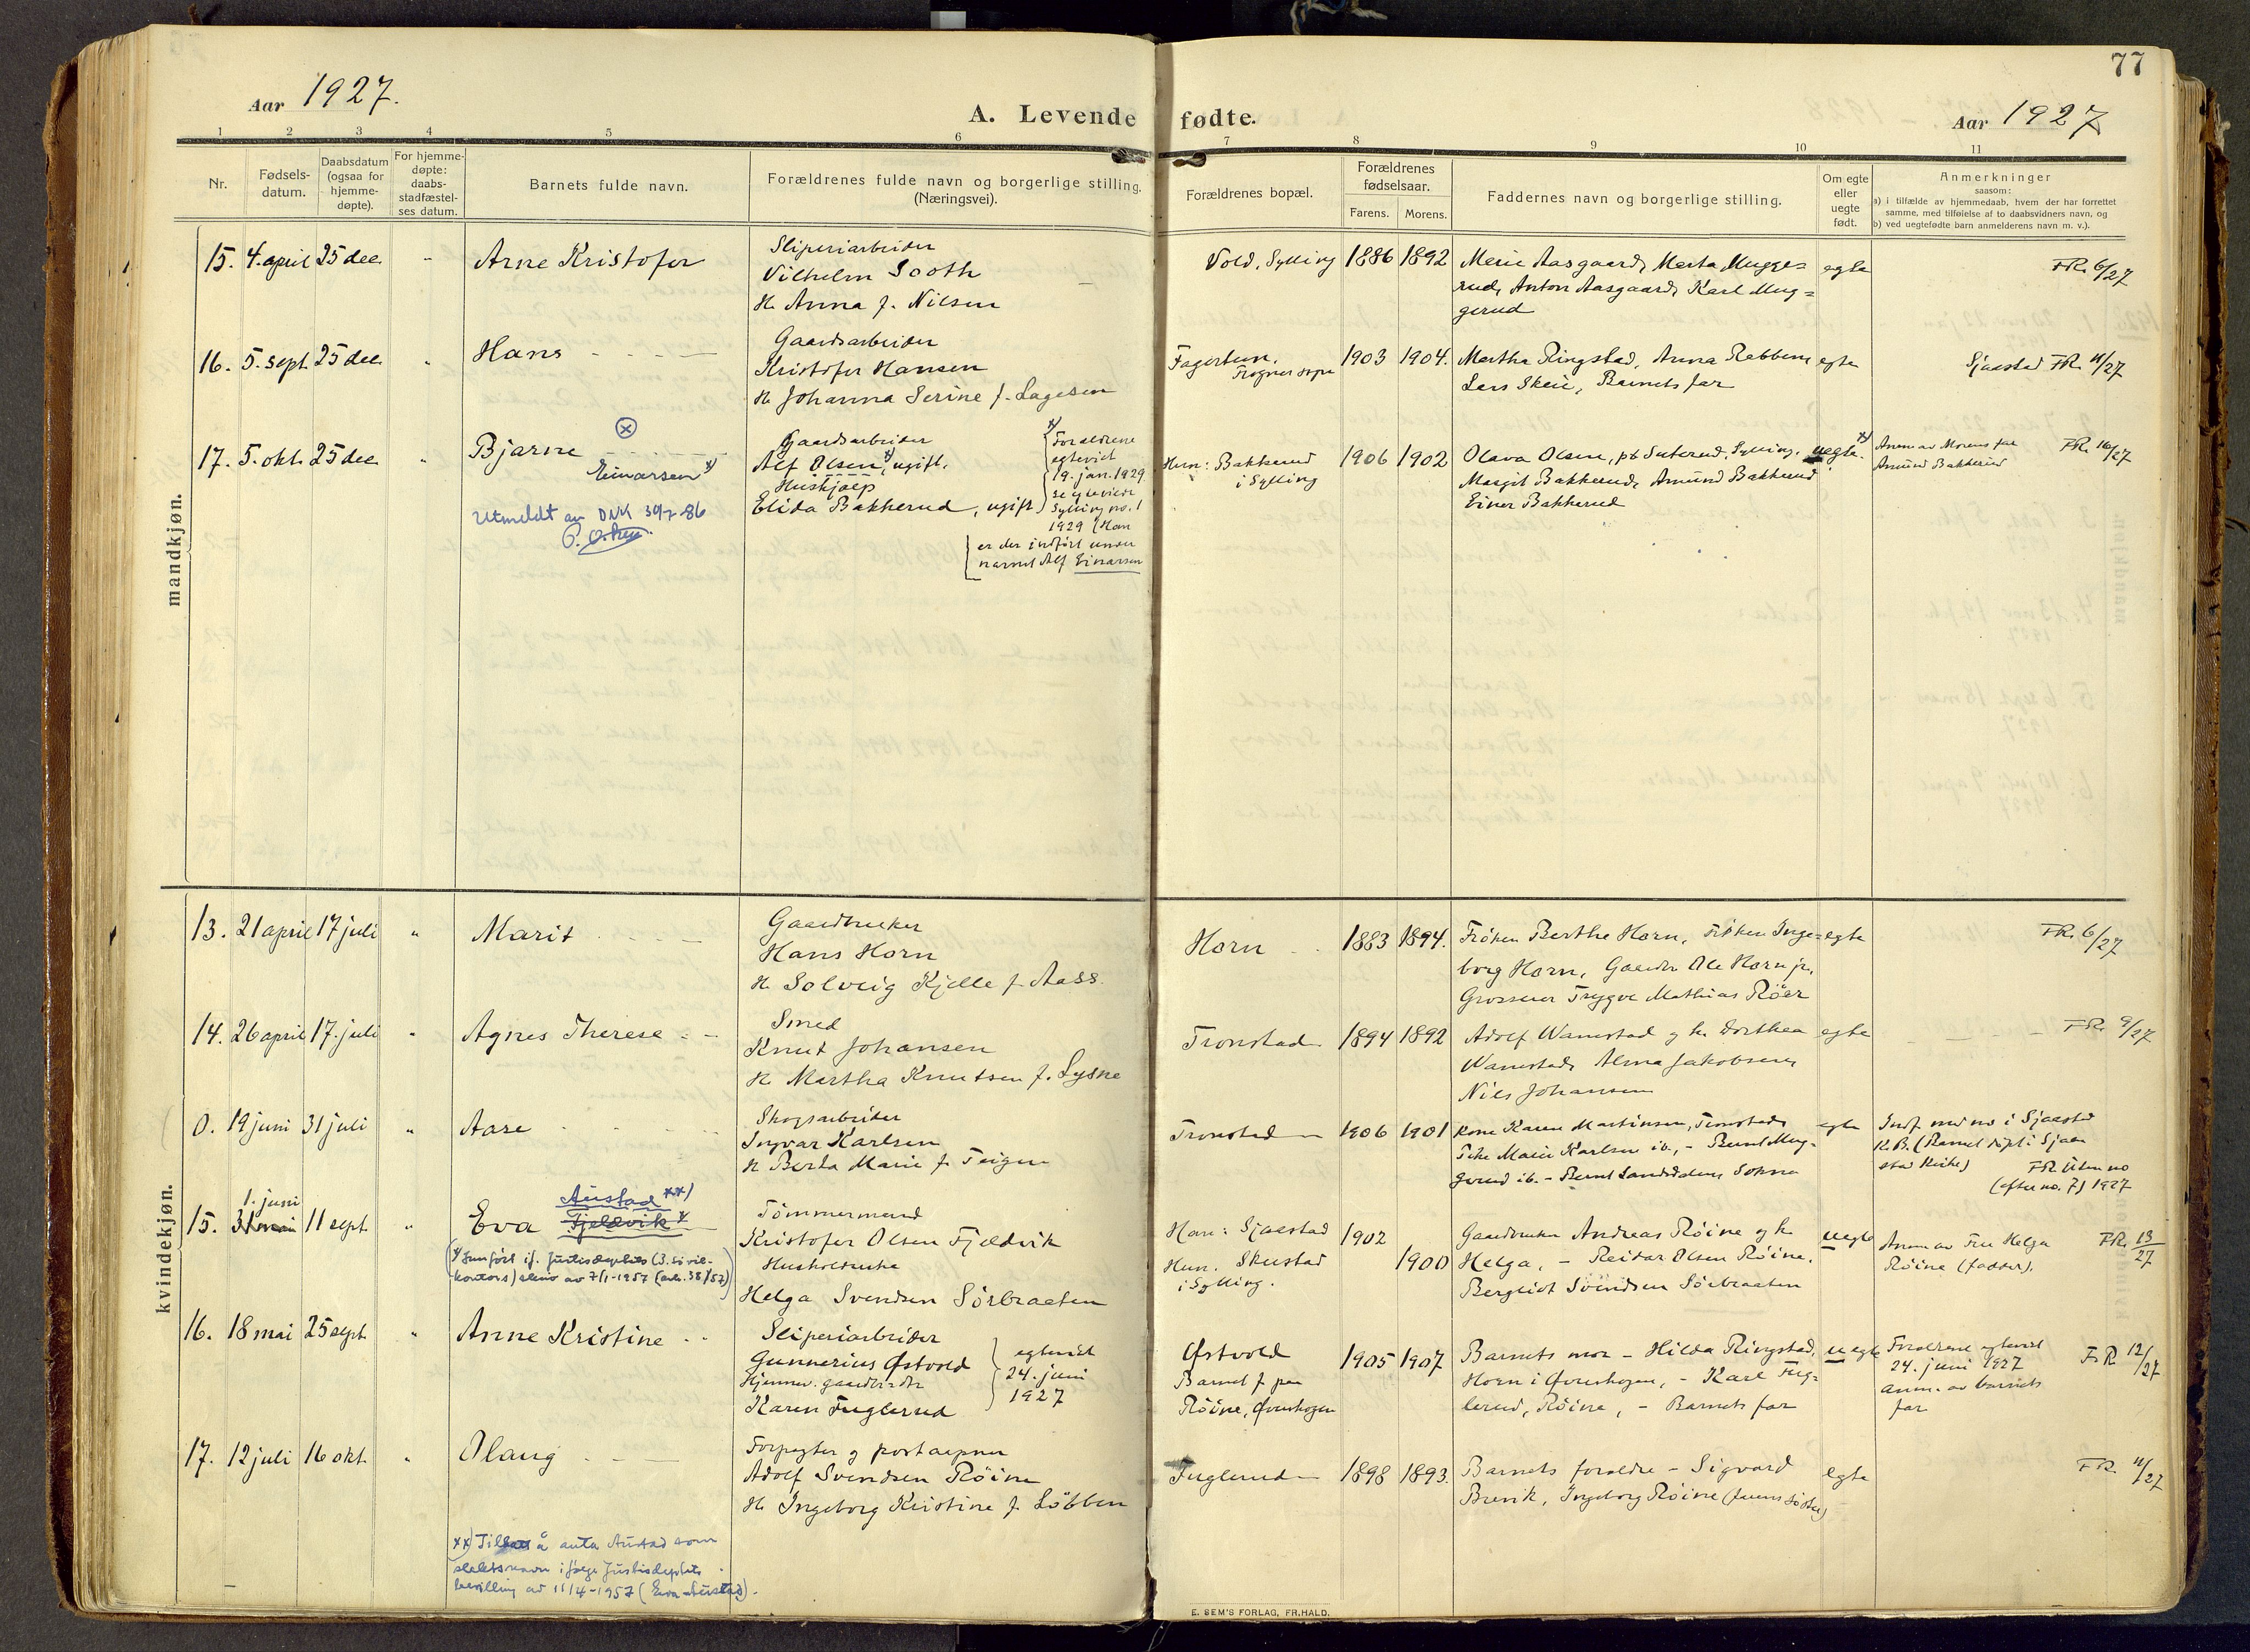 77
Aar 1927.
A. Levende fødte.
Aar 1927
1 2 3 4 5 6 7 8 9 10 11
Nr.
Fødsels-
datum.
Daabsdatum
(ogsaa for
hjemme-
døpte).
For hjemme-
døpte:
daabs-
stadfæstel-
ses datum.
Barnets fulde navn.
Forældrenes fulde navn og borgerlige stilling.
(Næringsvei).
Forældrenes bopæl.
Forældrenes
fødselsaar.
Farens. Morens.
Faddernes navn og borgerlige stilling.
Om egte
eller
uegte
født.
Anmerkninger
saasom:
a) i tilfælde av hjemmedaab, hvem der har forrettet
samme, med tilføielse af to daabsvidners navn, og
b) ved uegtefødte barn anmelderens navn m. v.).
mandkjøn.
15. 4. april 25 dec. "
Arne Kristofer
Sliperiarbeider
Vilhelm Sooth
H. Anna f. Nilsen
Vold, Sylling
1886 1892
Marie Aasgaard, Marta Mugge=
rud, Anton Aasgaard, Karl Mug=
gerud
egte
FR. 6/27
16. 5. sept. 25 dec. "
Hans
Gaardsarbeider
Kristofer Hansen
H. Johanna Serine f. Lagesen
Fagertun,
Frogner sogn
1903 1904.
Martha Ringstad, Anna Rabben
Lars Skeie, Barnets far
egte
Sjaastad FR. 11/27
17. 5. okt. 25 dec. "
Bjarne
Einarsen x)
Utmeldt av DNK 30/7-86
Gaardsarbeider
Alf Olsen x), ugift.
Hushjælp
Elida Bakkerud, ugift
x)
Forældrene
egteviet
19. jan. 1929
se egteviede
Sylling no. 1
1929 (Han
er der indført under
navnet Alf Einarsen
Hun: Bakkerud
i Sylling
1906 1902
Olava Olsen, Sylling,
Margit Bakkerud, Amund Bakkerud
Einar Bakkerud
uegte. x)
Anm av Morens far
Amund Bakkerud
FR. 16/27
kvindekjøn.
13. 21 april 17 juli "
Marit
Gaardbruker
Hans Horn
H. Solveig Kjelle f. Aass.
Horn
1883 1894.
Frøken Berthe Horn, Frøken Inge=
borg Horn, Gaardbr Ole Horn jr,
Grosserer Trygve Mathias Röer
egte
FR. 6/27
14. 26 april 17. juli "
Agnes Therese
Smed
Knut Johansen
H. Martha Knutsen f. Lysne
Tronstad
1894 1892
Adolf Wamestad og h. Dorthea
Wamestad, Alma Jakobsen,
Nils Johansen
egte
FR. 9/27
0. 19 juni 31 juli "
Aase
Skogsarbeider
Ingvar Karlsen
H. Berta Marie f. Teigen
Tronstad
1906 1901
Kone Karen Martinsen, Tronstad,
Pike Marie Karlsen ib., - Bernt Mug-
gerud ib. - Bernt Sokna
egte
Indf. uten no i Sjaastad
K.B. (Barnet døpt i Sjaa-
stad Kirke)
FR. Uten no
(efter no. 7) 1927
15. 1. juni
31 mai 11 sept. "
Austad xx)
Eva Fjeldvik x)
(x) Jevnført if. Justisdeptets (3. sivil-
kontors) skriv av 7/1-1957 (ark. 38/57)
Tömmermand
Kristofer Olsen Fjeldvik
Husholderske
Helga Svendsen Sörbraaten
Han: Sjaastad
Hun. Skustad
i Sylling.
1902
1900
Gaardbruker Andreas Röine og h.
Helga, - Reidar Olsen Röine,
Bergliot Svendsen Sörbraaten
uegte
Anm av Fru Helga
Röine (fadder).
FR. 13/27
16. 18 mai 25 sept. "
Anne Kristine
Sliperiarbeider
Gunnerius Østvold
Hjemmev. gaardbr.dtr
Karen Fuglerud
egteviet
24. juni
1927
Østvold
Barnet f. paa
Röine, Øvreskogen
1905 1907
Barnets mor - Hilda Ringstad,
Horn i Øvreskogen, - Karl Fug=
lerud, Röine, - Barnets far
uegte
Forældrene egteviet
24. juni 1927
Anm. av barnets
far
FR 12/27
17. 12 juli 16 okt. "
Olaug
Forpagter og postaapner
Adolf Svendsen Röine
H. Ingeborg Kristine f. Löbben
Fuglerud
1898 1893.
Barnets foreldre - Sigvard
Brevik, Ingeborg Röine (farens söster)
egte
FR. 11/27
xx) Tillatt å anta Austad som
slektsnavn ifølge Justisdeptets
bevilling av 11/4-1957 (Eva Austad).
E. SEM'S FORLAG, FR.HALD.